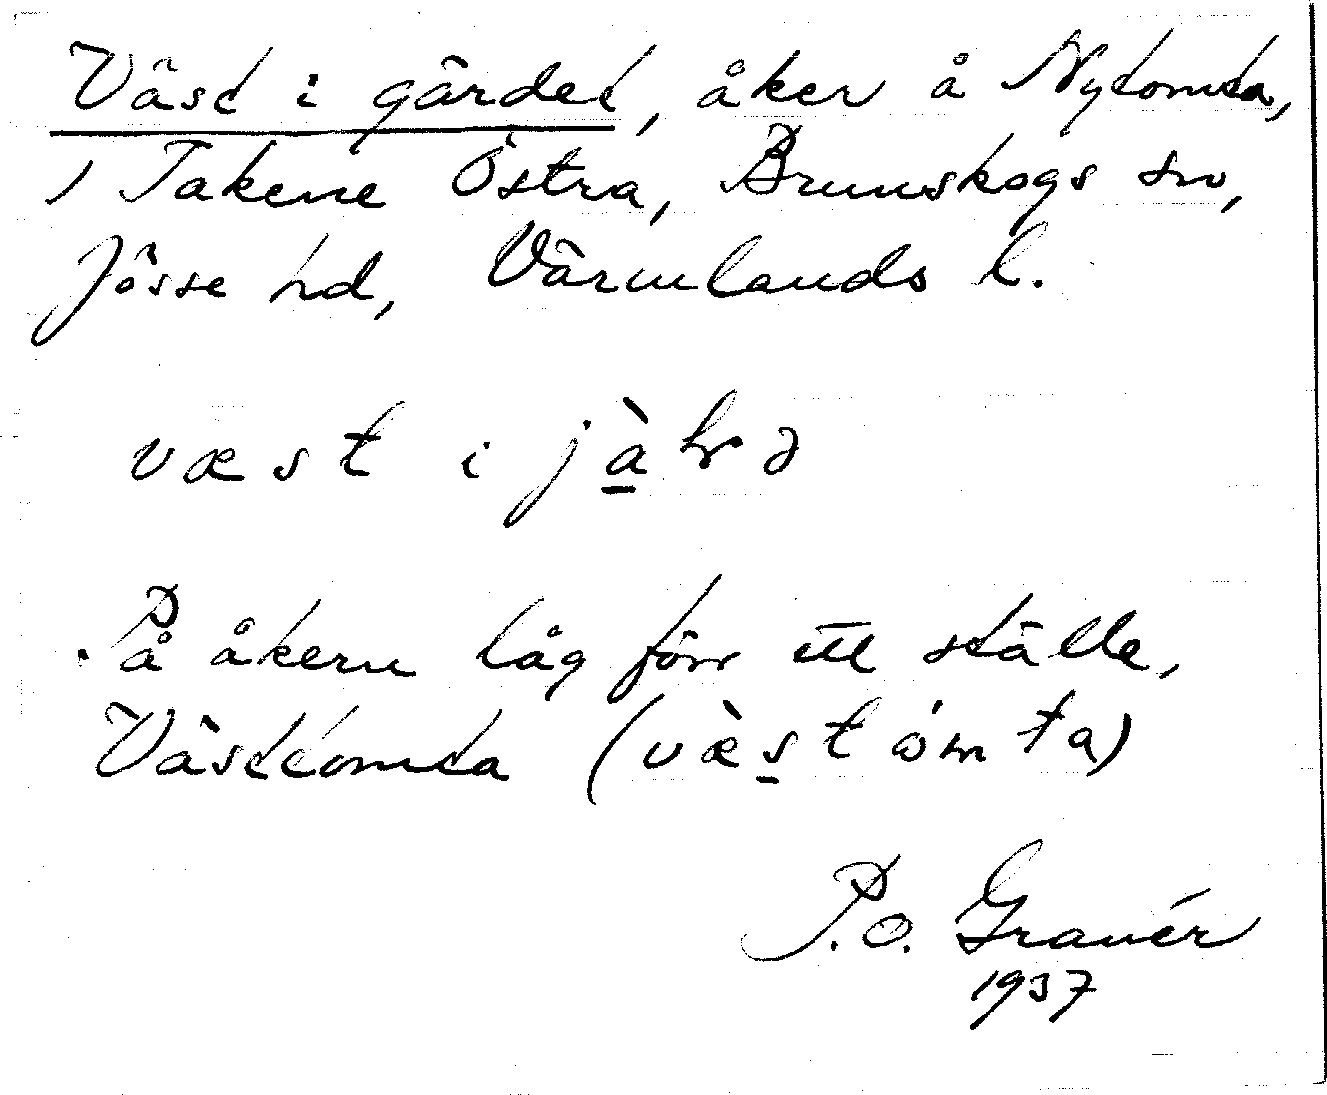 Väst i gärdet, åker å Nytomta,
1 Takene Östra, Brunskogs sn,
Jösse hd, Värmlands l.
væst i
På åkern låg förr ett ställe,
Västtomta (væ̀stómta)
P.O. Granér
1937